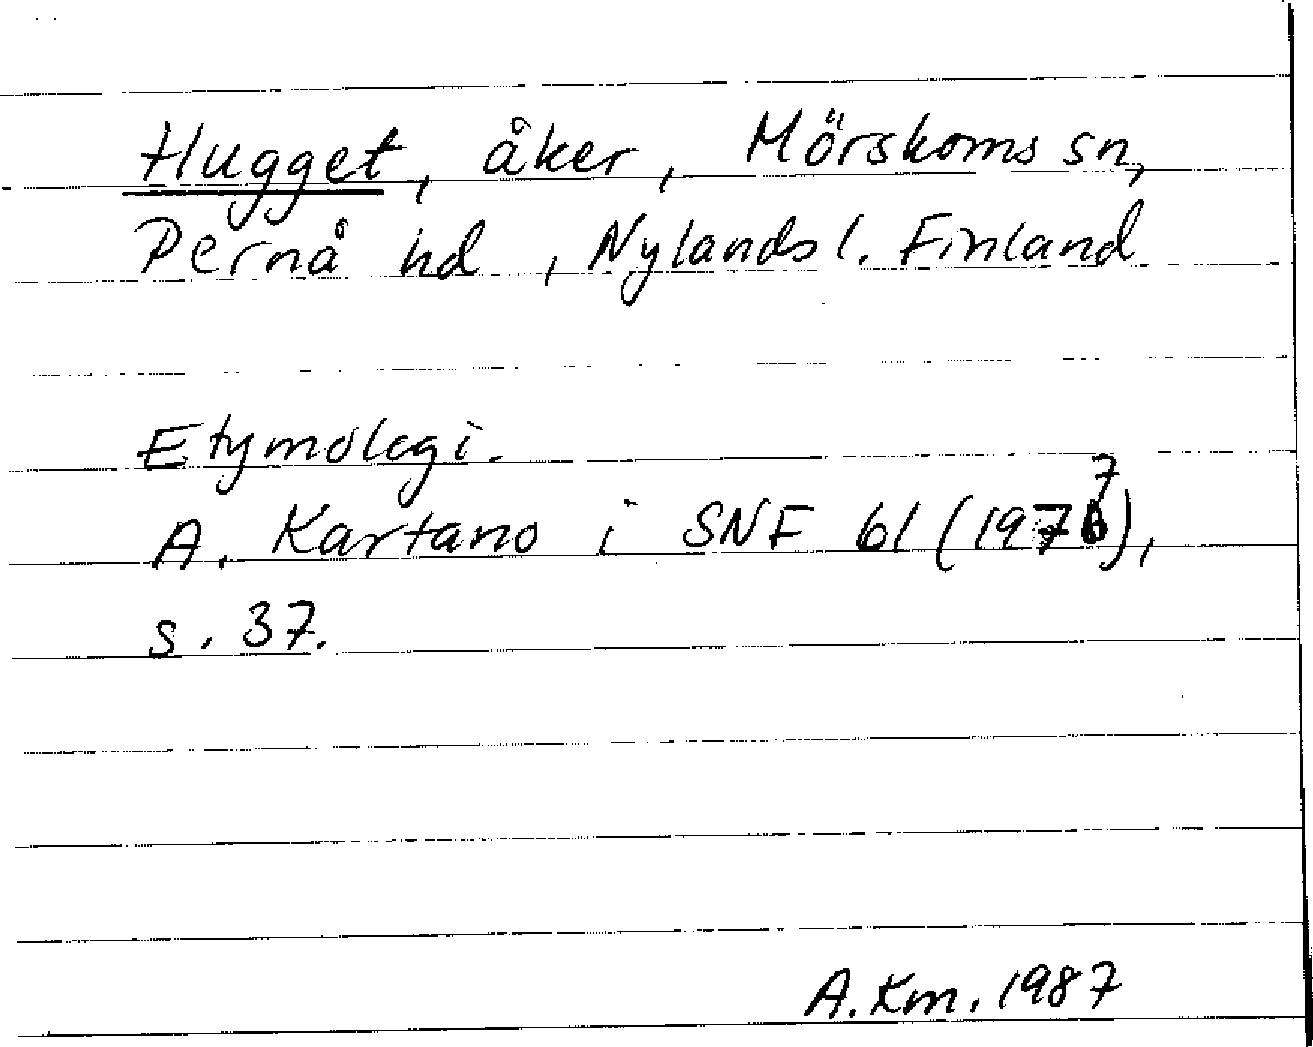 Hugget, åker, Mörskoms sn,
Pernå hd, Nylands l. Finland
Etymologi.
A. Kartano i SNF 61 (1977),
s. 37.
A. Km. 1987